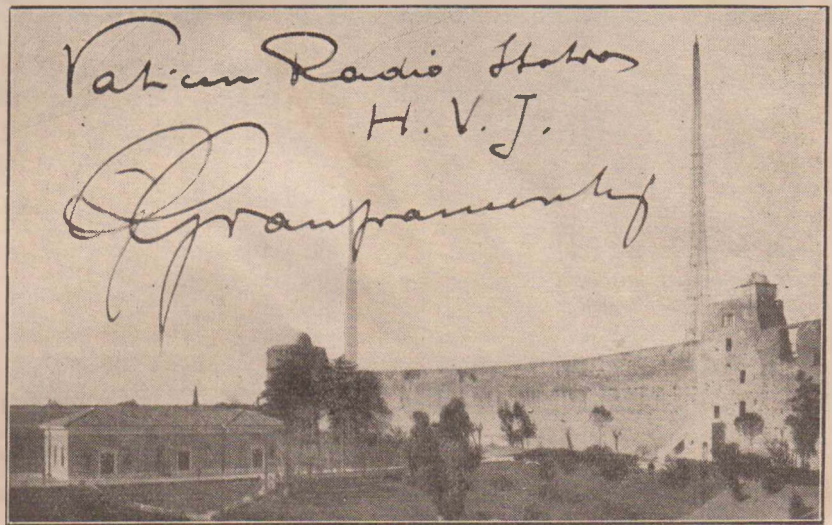 Vatican Radio Station
H. V. J.
Gianfranceschi